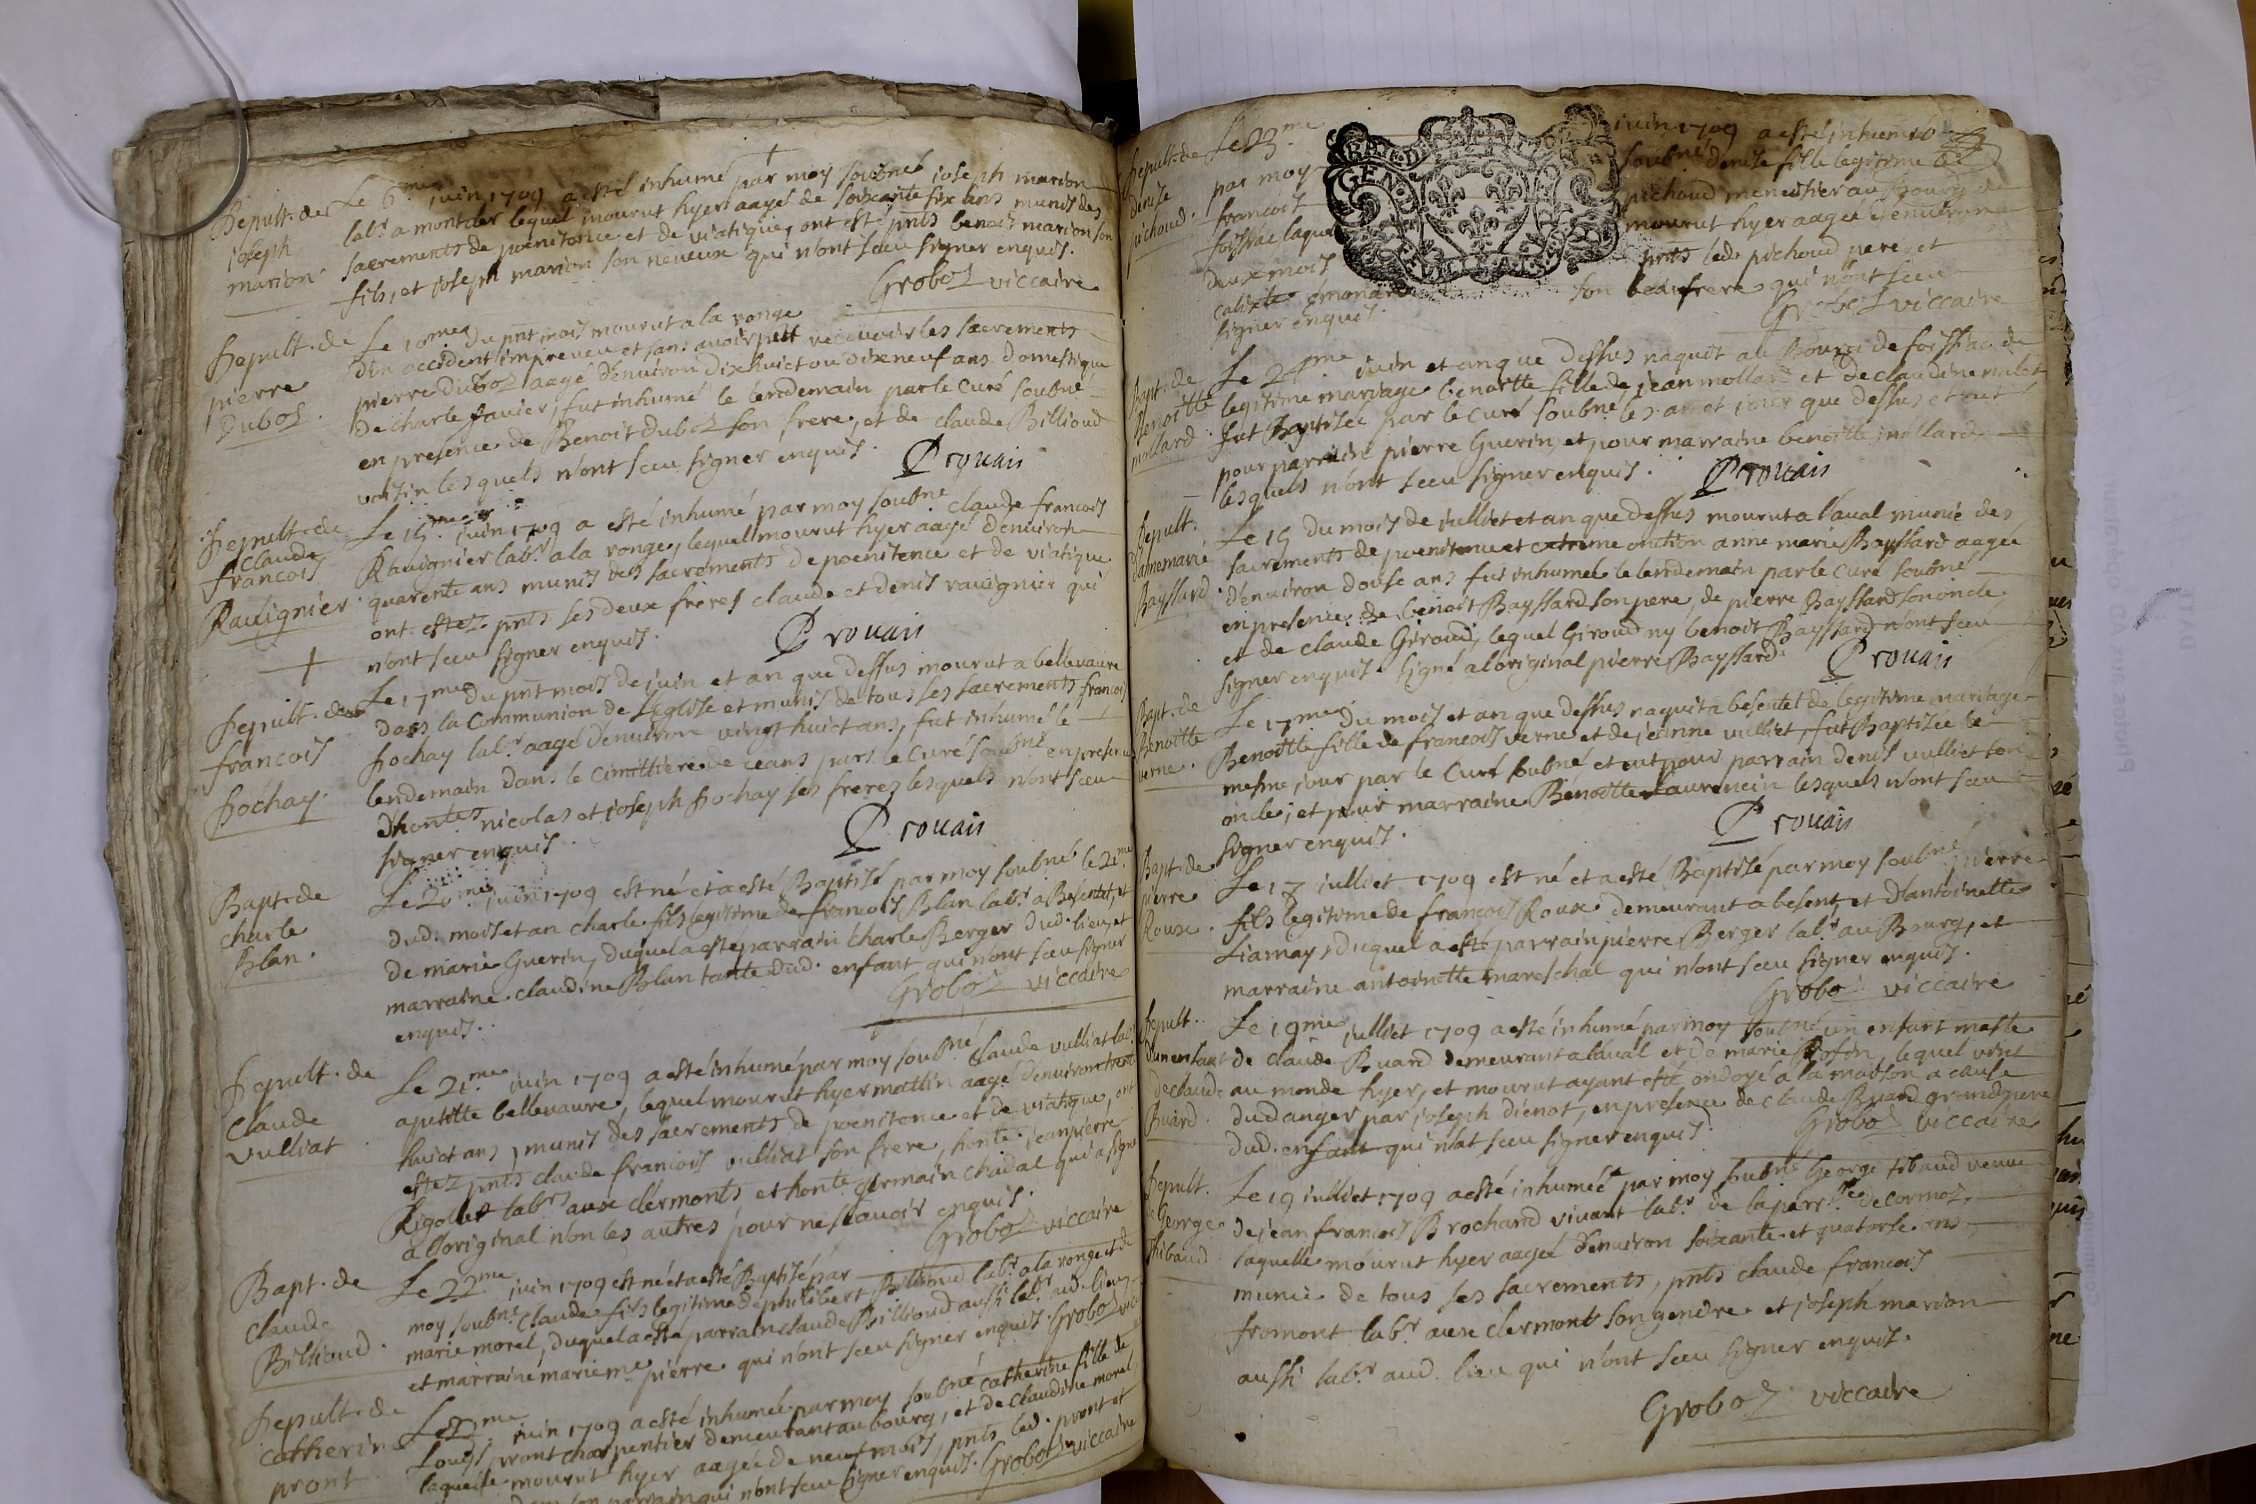 Sepult. de
joseph
marion
Le 6me juin 1709 a esté inhumé par moy soubné joseph marion
labr a montder lequel mourut hyer aagé de soixante six ans munis des
sacrements de poenitence et de viatique, ont esté pnts benoit marion son
fils, et joseph marion son neveux qui n'ont sceu signer enquis.
Groboz viccaire
Sepult. de
pierre
Duboz.
Le 10me du pnt mois mourut a la ronge
d'un accident impreveu et sans avoir peut recevoir les sacrements
pierre Duboz aagé d'environ dix huict ou dix neuf ans domestique
de charle Javier, fut inhumé le lendemain par le Curé soubné
en presence de Benoit duboz son frere, et de claude Billioud
voisin lesquels n'ont sceu signer enquis.
Prouais
Sepult. de
Claude
francois
Ravignier.
Le 15me juin 1709 a esté inhumé par moy soubné claude francois
Ravignier labr a la ronge, lequel mourut hyer aagé d'environ
quarente ans munis des sacrements de poenitence et de viatique
ont estez pnts ses deux freres claude et denis ravignier qui
n'ont sceu signer enquis.
Prouais
Sepult. de
francois
Sochay.
Le 17me du pnt mois de juin et an que dessus mourut a bellevavre
dans la Communion de L'Eglise et munis de tous ses sacrements francois
Sochay labr aagé d'environ vingt huict ans, fut inhumé le
lendemain dans le cimittiere de ceans pars le curé soubné en presence
d'hontes nicolas et joseph Sochay ses freres lesquels n'ont sceu
signer enquis.
Prouais
Bapt. de
charle
Blan.
Le 20me juin 1709 est né et a esté Baptisé par moy soubné le 21me
dud. mois et an charle fils legitime de francois Blan labr a Besentet, et
de marie Guerin, duquel a esté parrain charle Berger dud. lieu, et
marraine claudine Blan tante dud. enfant qui n'ont sceu signer
enquis.
Groboz viccaire
Sepult. de
Claude
vulliat.
Le 21me juin 1709 a esté inhumé par moy soubné Claude vulliat labr
a petitte bellevavre, lequel mourut hyer mattin aagé d'environ trente
huict ans, munis des sacrements de poenitence et de viatique, ont
estez pnts claude francois vulliat son frere, honte jean pierre
Rigollet labrs aux clermonts et honte germain chadal qui a signé
a l'original non les autres pour ne scavoir enquis.
Groboz viccaire
Bapt. de
Claude
Billioud.
Le 22me juin 1709 est né et a esté Baptisé par
moy soubné Claude fils legitime de philibert Billioud labr a la ronge et de
marie morel, duquel a esté parrain claude Billioud aussi labr aud. lieu,
et marraine marie me pierre qui n'ont sceu signer enquis. Groboz vicc
Sepult. de
Catherine
pront
Le 23me juin 1709 a esté inhumée par moy soubné catherine fille de
Louys pront charpentier demeurant au bourg, et de claudine morel
laquelle mourut hyer aagée de neuf mois, pnts led. pront et
son parrain qui n'ont sceu signer enquis. Groboz viccaire
Sepult. de
denise
pichoud.
Le 23me juin 1709 a esté inhumée
par moy soubné denise fille legitime de
francois pichoud menusier au Bourg de
foissiac laquelle mourut hyer aagée d'environ
deux mois pnts led. pichoud pere, et
calixte emonard son beaufrere qui n'ont sceu
signer enquis.
Groboz viccaire
GEN
Bapt. de
Benoitte
mollard.
Le 24me juin et an que dessus naquit au Bourg de foissiac de
legitime mariage benoitte fille de jean mollard et de claudine nalet
fut Baptisée par le curé soubné les an et jour que dessus et eut
pour parrain pierre Guerin, et pour marraine benoitte mollard
lesquels n'ont sceu signer enquis.
Prouais
Sepult.
d'annemarie
Bayssard.
Le 15 du mois de julliet et an que dessus mourut a l'aval munie des
sacrements de poenitence et extreme onction anne marie Bayssard aagée
d'environ douse ans fut inhumée le lendemain par le curé soubné
en presence de benoit Bayssard son pere, de pierre Bayssard son oncle,
et de claude Giroud, lequel Giroud ny benoit Bayssard n'ont sceu
signer enquis. signé a l'original pierre Bayssard.
Prouais
Bapt. de
Benoitte
verne.
Le 17me du mois et an que dessus naquit a besentet de legitime mariage
Benoitte fille de francois verne et de jeanne vulliet, fut Baptisée le
mesme jour par le Curé soubné et eut pour parrain denis vulliet son
oncle; et pour marraine Benoitte Laurencin lesquels n'ont sceu
signer enquis.
Prouais
Bapt. de
pierre
Roux.
Le 17 julliet 1709 est né et a esté Baptisé par moy soubné pierre
fils legitime de francois Roux demeurant a besent, et d'antoinette
Liamay, duquel a esté parrain pierre Berger labr au Bourg, et
marraine antoinette mareschal qui n'ont sceu signer enquis.
Groboz viccaire
Sepult.
d'un enfant
de claude
Buard.
Le 19me julliet 1709 a esté inhumé par moy soubné un enfant masle
de claude Buard demeurant a l'aval et de marie Bosin, lequel vint
au monde hyer, et mourut ayant esté ondoyé a la maison a cause
du danger par joseph dienot, en presence de claude Buard grandpere
dud. enfant qui n'at sceu signer enquis.
Groboz viccaire
Sepult.
de George
thibaud
Le 19 julliet 1709 a esté inhumée par moy soubné George tibaud veuve
de jean francois Brochand vivant labr de la parrsse de cormoz,
laquelle mourut hyer aagée d'environ soixante et quatorse ans,
munie de tous ses sacrements, pnts claude francois
fromont labr aux clermont son gendre et joseph marion
aussi labr aud. lieu qui n'ont sceu signer enquis.
Groboz viccaire